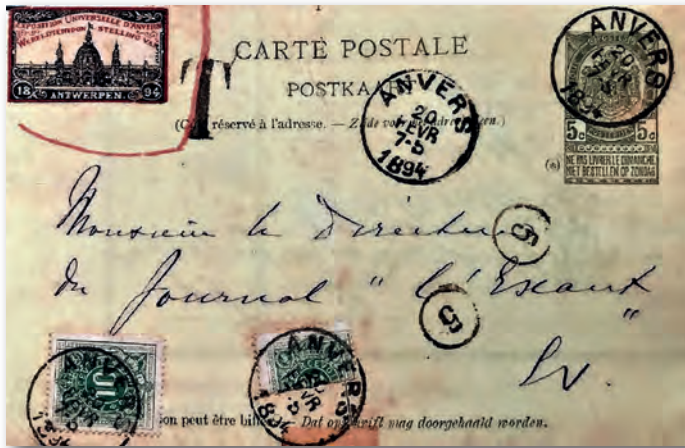 EXPOSITION UNIVERSELLE D'ANVERS
WERELDTENTOONSTELLING VAN
18 ANTWERPEN. 94
CARTE POSTALE
POSTKAA
T
réservé à l'adresse. — Zijde voor
ANVERS
20
FEVR
7-S
1894
ANVERS
20
FEVR
1894
5c 5c
(*)
NE PAS LIVRER LE DIMANCHE
NIET BESTELLEN OP ZONDAG
Monsieur le Directeur
du Journal "l'Escaut"
Ev.
G
G
ANVERS
FEVR
10
ANVERS
FEVR
1894
on peut être bif — Dat opschrift mag doorgehaald worden.